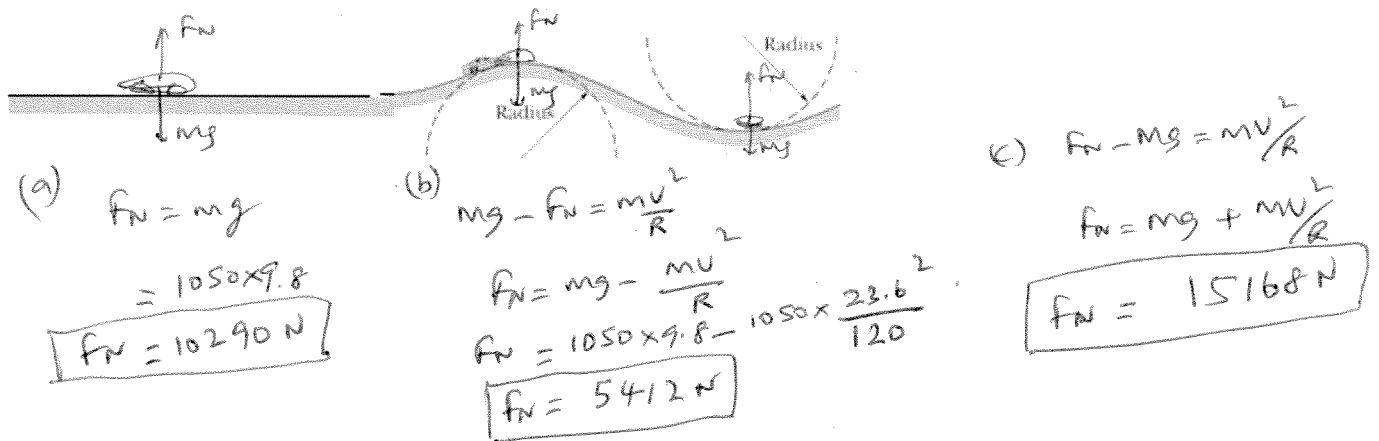 FN
mg
FN
mg
Radius
Radius
FN
mg
(a) FN = mg
= 1050×9.8
FN = 10290 N
(b) mg - FN = mv²/R
FN = mg - mv²/R
FN = 1050×9.8 - 1050× 23.6²/120
FN = 5412 N
c) FN - mg = mv²/R
FN = mg + mv²/R
FN = 15168 N